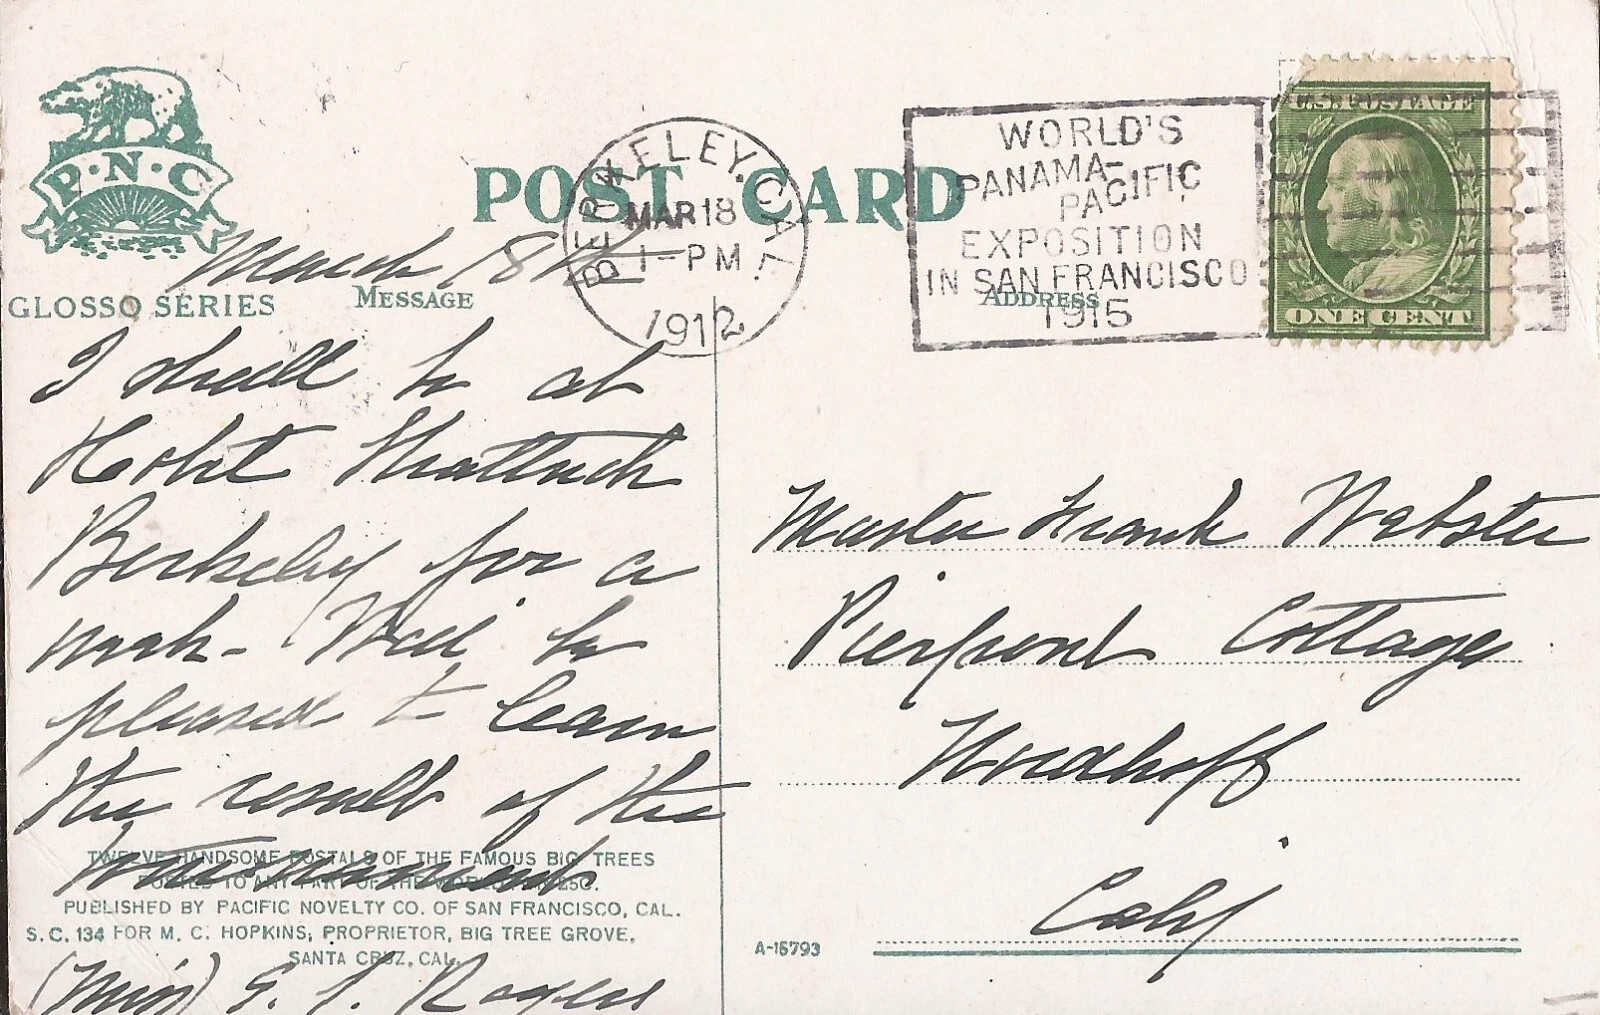 P·N·C
GLOSSO SERIES
POST CARD
MESSAGE
ADDRESS
BERKELEY, CAL.
MAR 18
1-PM
1912
WORLD'S
PANAMA-
PACIFIC
EXPOSITION
IN SAN FRANCISCO
1915
U.S. POSTAGE
ONE CENT
March 18th
I shall be at
Hotel Shattuck
Berkeley for a
week - Will be
pleased to learn
the result of the
(Miss) E. S. Rogers
TWELVE HANDSOME POSTALS OF THE FAMOUS BIG TREES
POSTED TO ANY PART OF THE WORLD FOR 25C.
PUBLISHED BY PACIFIC NOVELTY CO. OF SAN FRANCISCO, CAL.
S. C. 134 FOR M. C. HOPKINS, PROPRIETOR, BIG TREE GROVE,
SANTA CRUZ, CAL.
Master Frank Webster
Pierpont Cottage
Nordhoff
Calif
A-15793